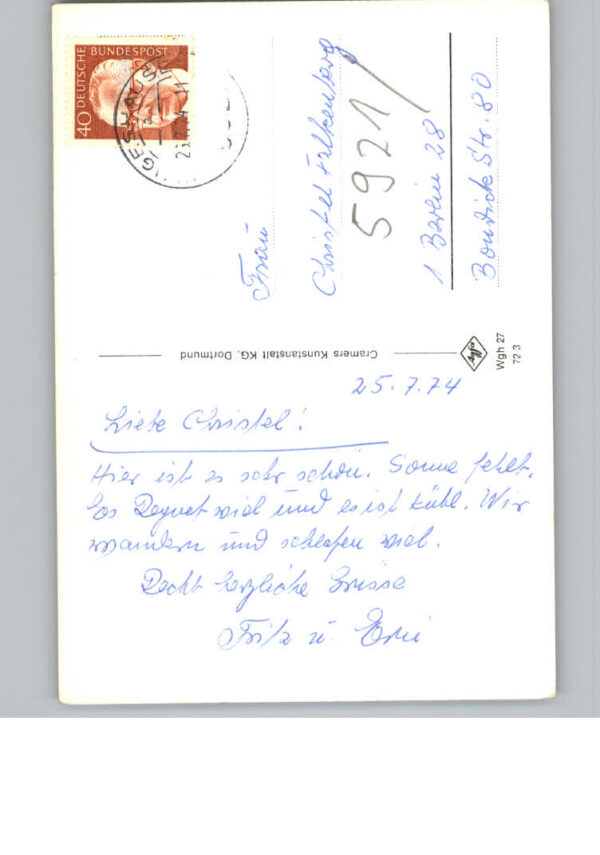 40 DEUTSCHE BUNDESPOST
Frau
Christel Falkenberg
5921/
1 Berlin 28
Str. 80
Cramers Kunstanstalt KG, Dortmund
Wgh 27
72 3
25.7.74
Liebe Christel!
Hier ist es sehr schön. Sonne fehlt.
Es Regnet viel und es ist kühl. Wir
wandern und schlafen viel.
Recht herzliche Grüsse
Fritz u.